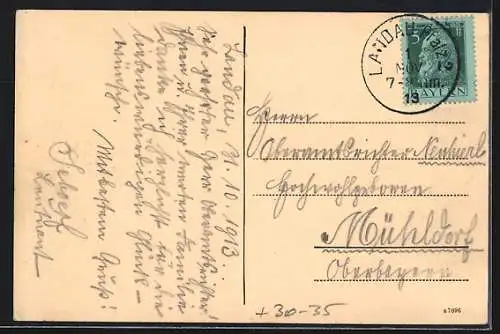 Landau, 31.10.1913.
Sehr geehrter Herr Oberamtsrichter!
Ihnen u. Ihrer werten Familie
danke ich herzlichst für die
liebenswürdigen Glück-
wünsche.
Mit bestem Gruß!
LANDAU (Pfalz)
NOV
7-
13
5
BAYERN
Herrn
Oberamtsrichter
Hochwohlgeboren
Mühldorf
Oberbayern
+30-35
a 7096